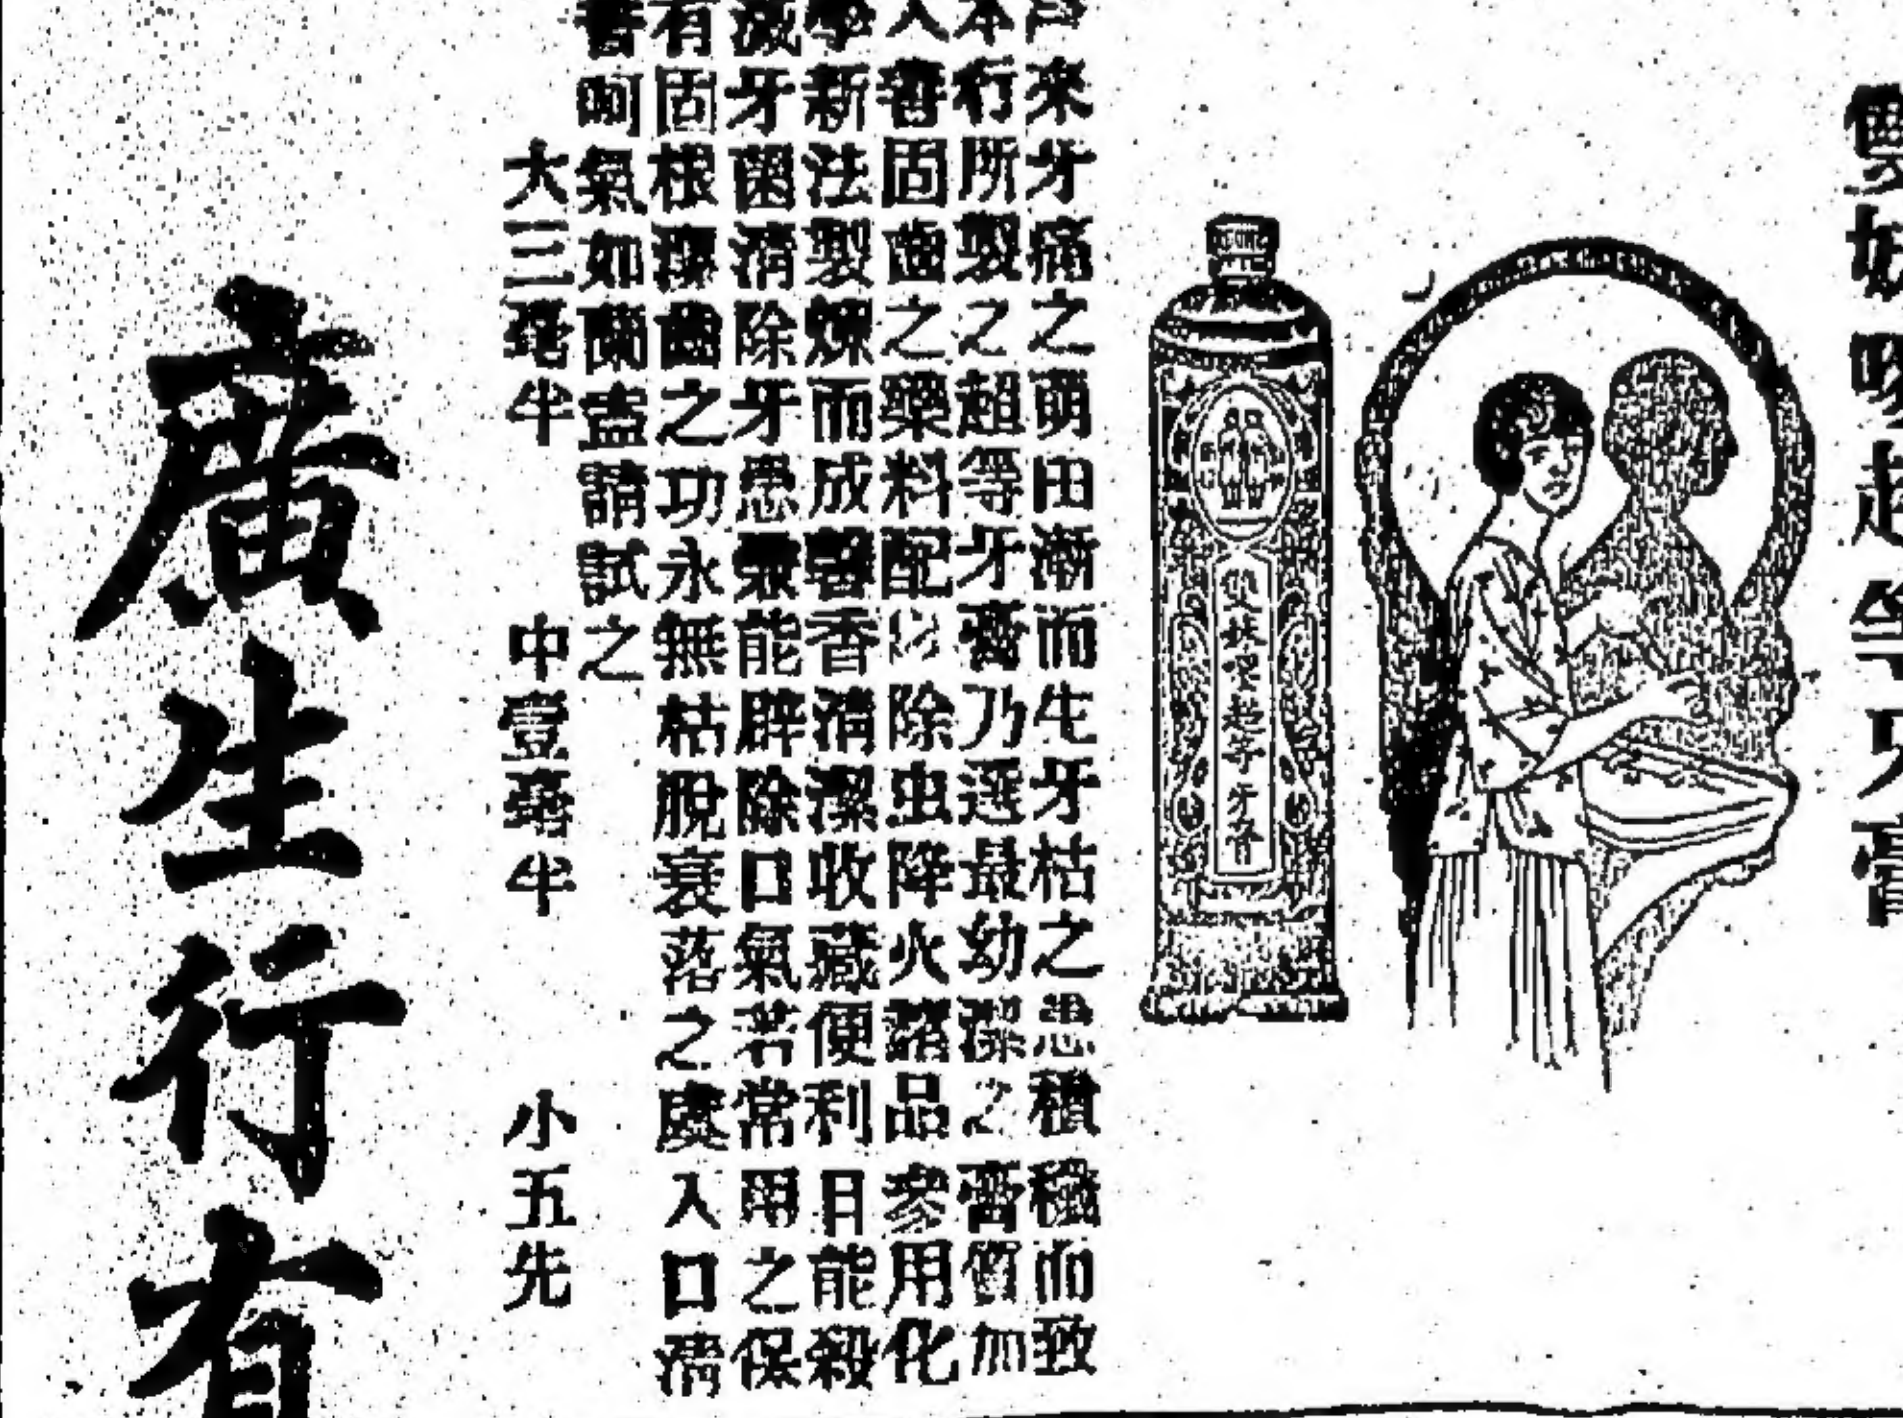 妹 超等牙膏
雙妹嘜超等牙膏
來牙痛之萌由漸而生牙枯之患積穢而致
本行所製之超等牙膏乃選最幼潔之膏質加
入香固齒之藥料配以除虫降火諸品參用化
學新法製煉而成馨香清潔收藏便利且能殺
滅牙菌清除牙患兼能辟除口氣若常用之保
有固根潔齒之功永無枯脫衰落之處入口清
香呵氣如蘭盍請試之
大三毫半 中壹毫半 小五先
廣生行有